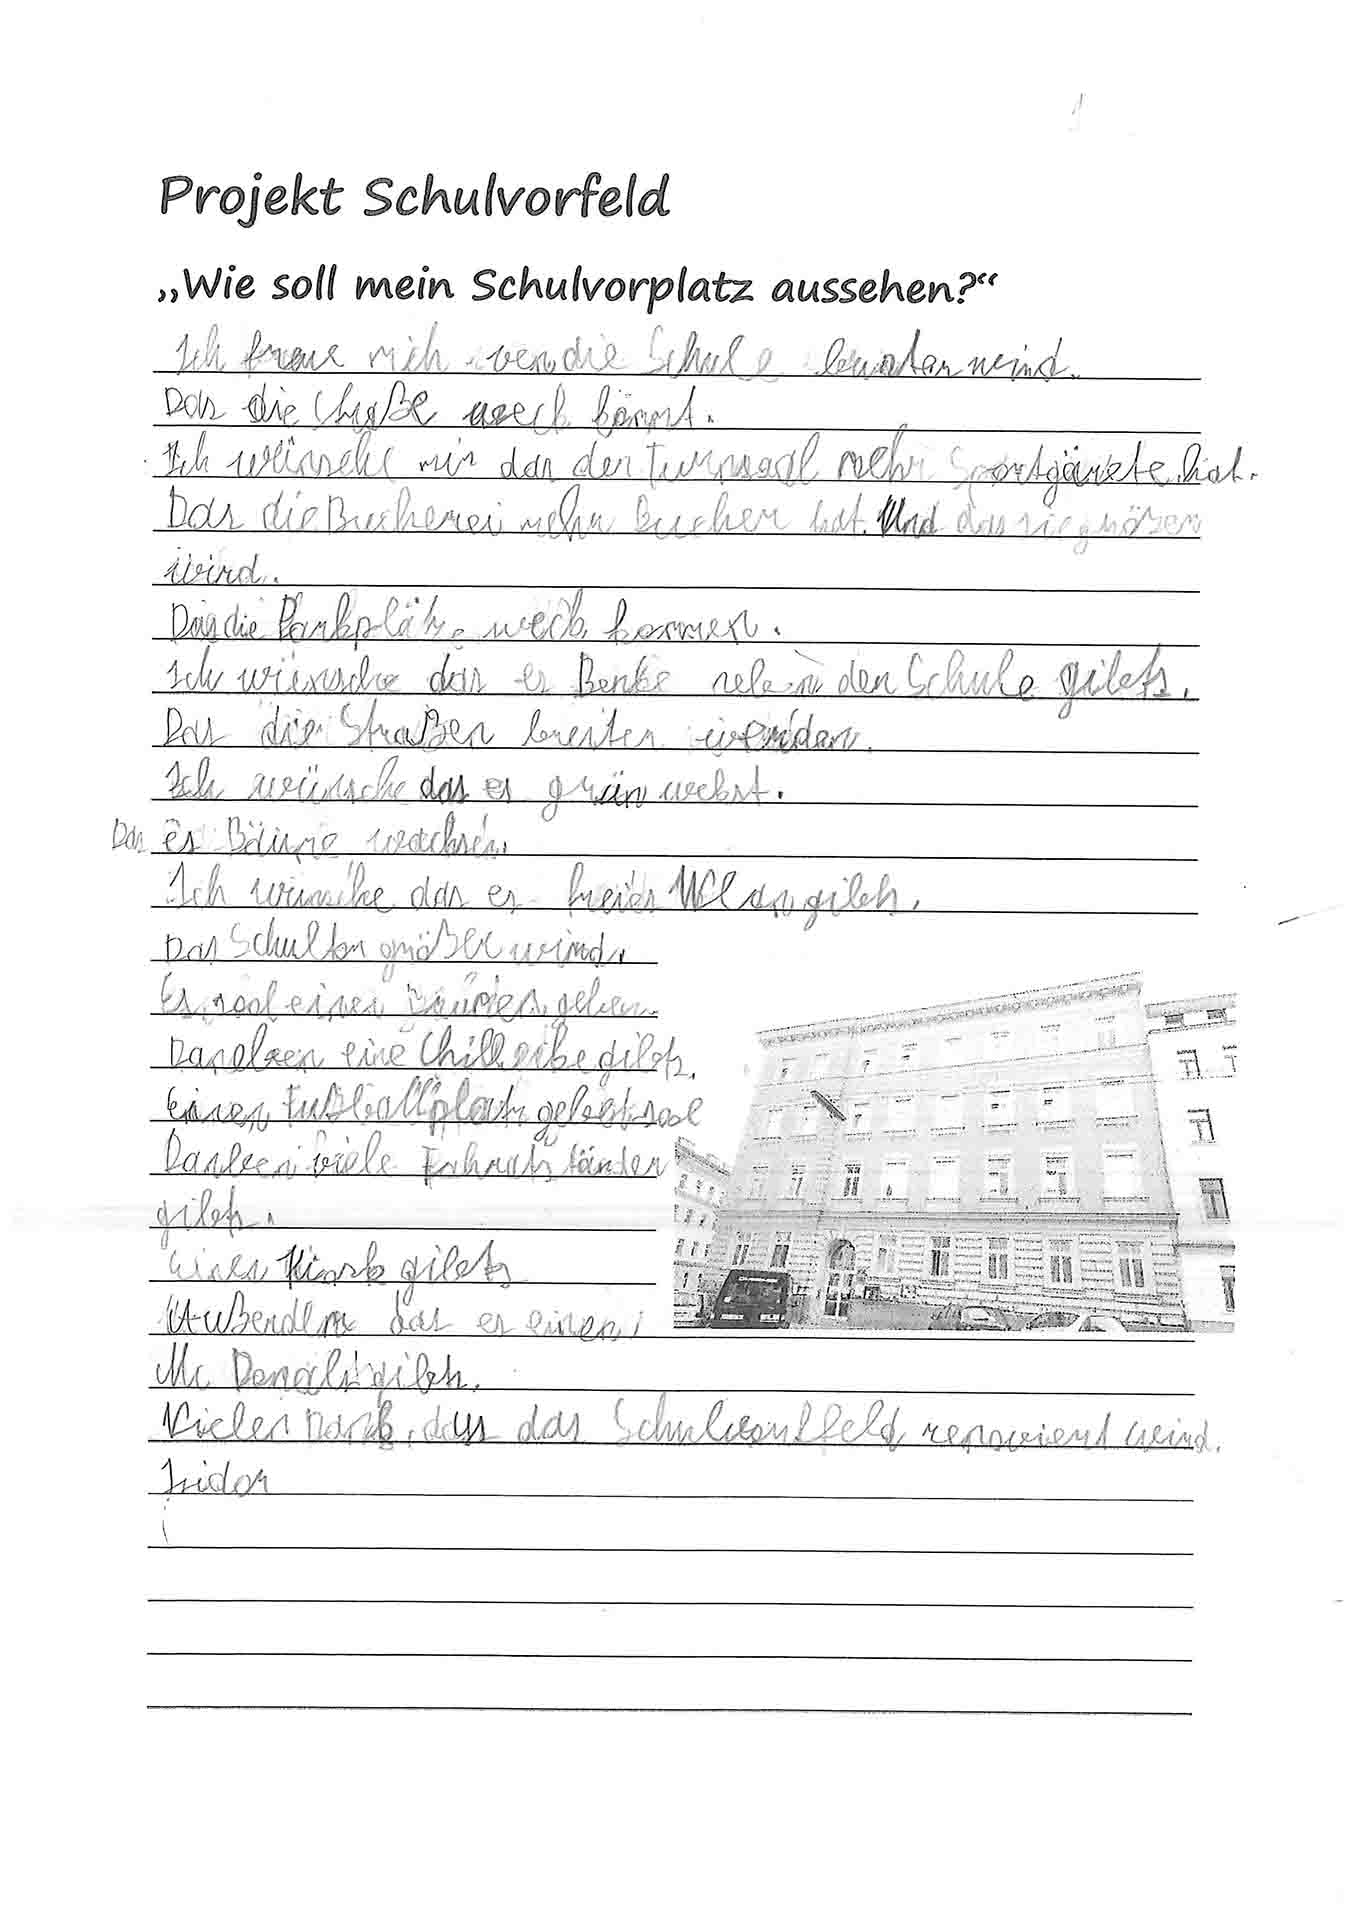 Projekt Schulvorfeld
„Wie soll mein Schulvorplatz aussehen?“
Ich freue mich wen die Schule bunter wird.
Das die weck kommt.
Ich wünsche mir das der Turnsaal mehr Sportgärete hat.
Das die Bucherei mehr Bucher hat. Und das sie größer
wird.
Das die Parkplätze weck kommen.
Ich wünsche das es Benke neben der Schule gibts.
Das die Straßen breiter werden.
Ich wünsche das es grün wekst.
Das es Bäume wachsen.
Ich wünsche das es freies WLan gibts.
Das Schultor größer wird.
Es sol einen geben.
eine Chill gibts.
Einen Fußballplatz sol
viele
gibts.
Einen Kiosk gibts
das es einen
Mc Donalts gibts.
Vielen Dank, das das renoviert wird.
Isidor